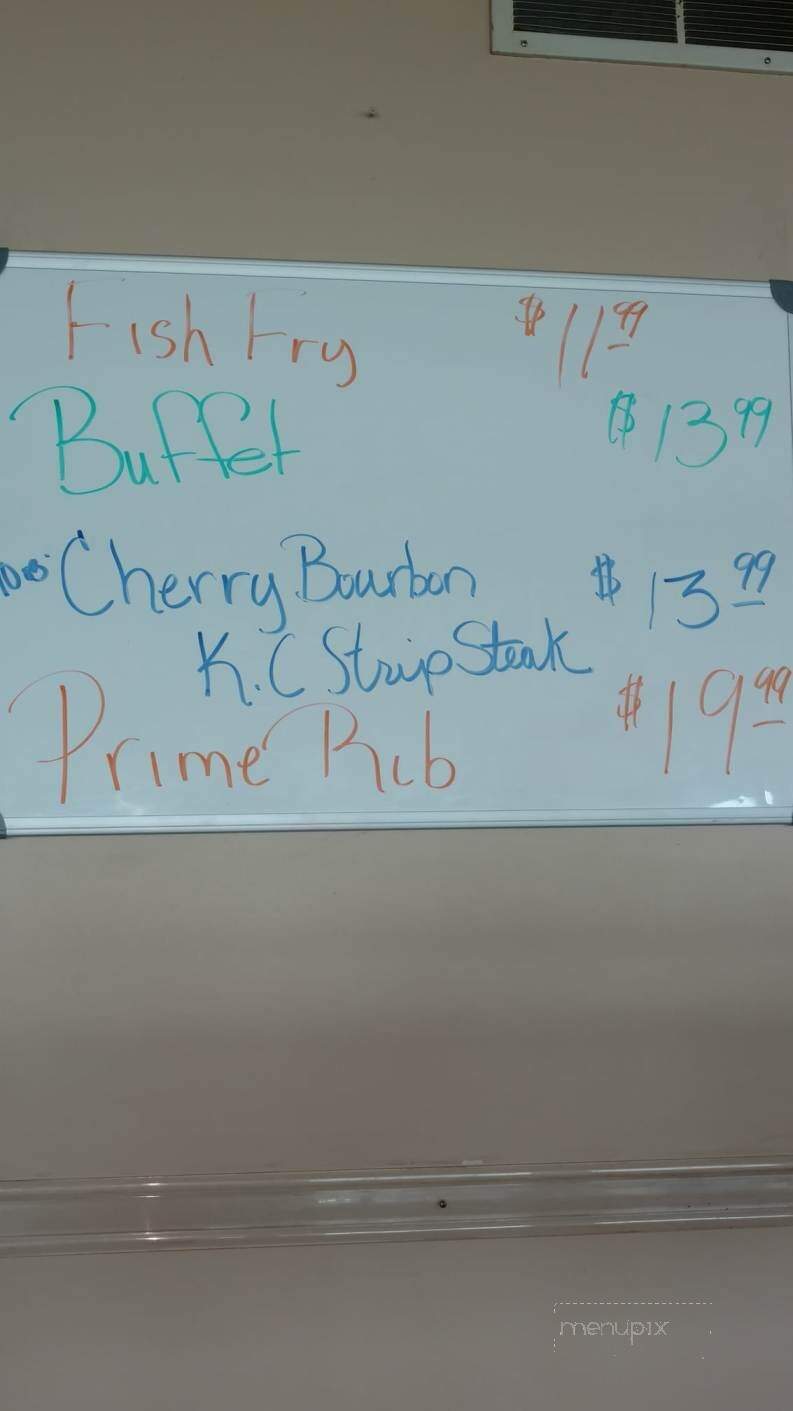 Fish Fry $11.99
Buffet $13.99
Cherry Bourbon $13.99
K.C Strip Steak
Prime Rib $19.99
menupix